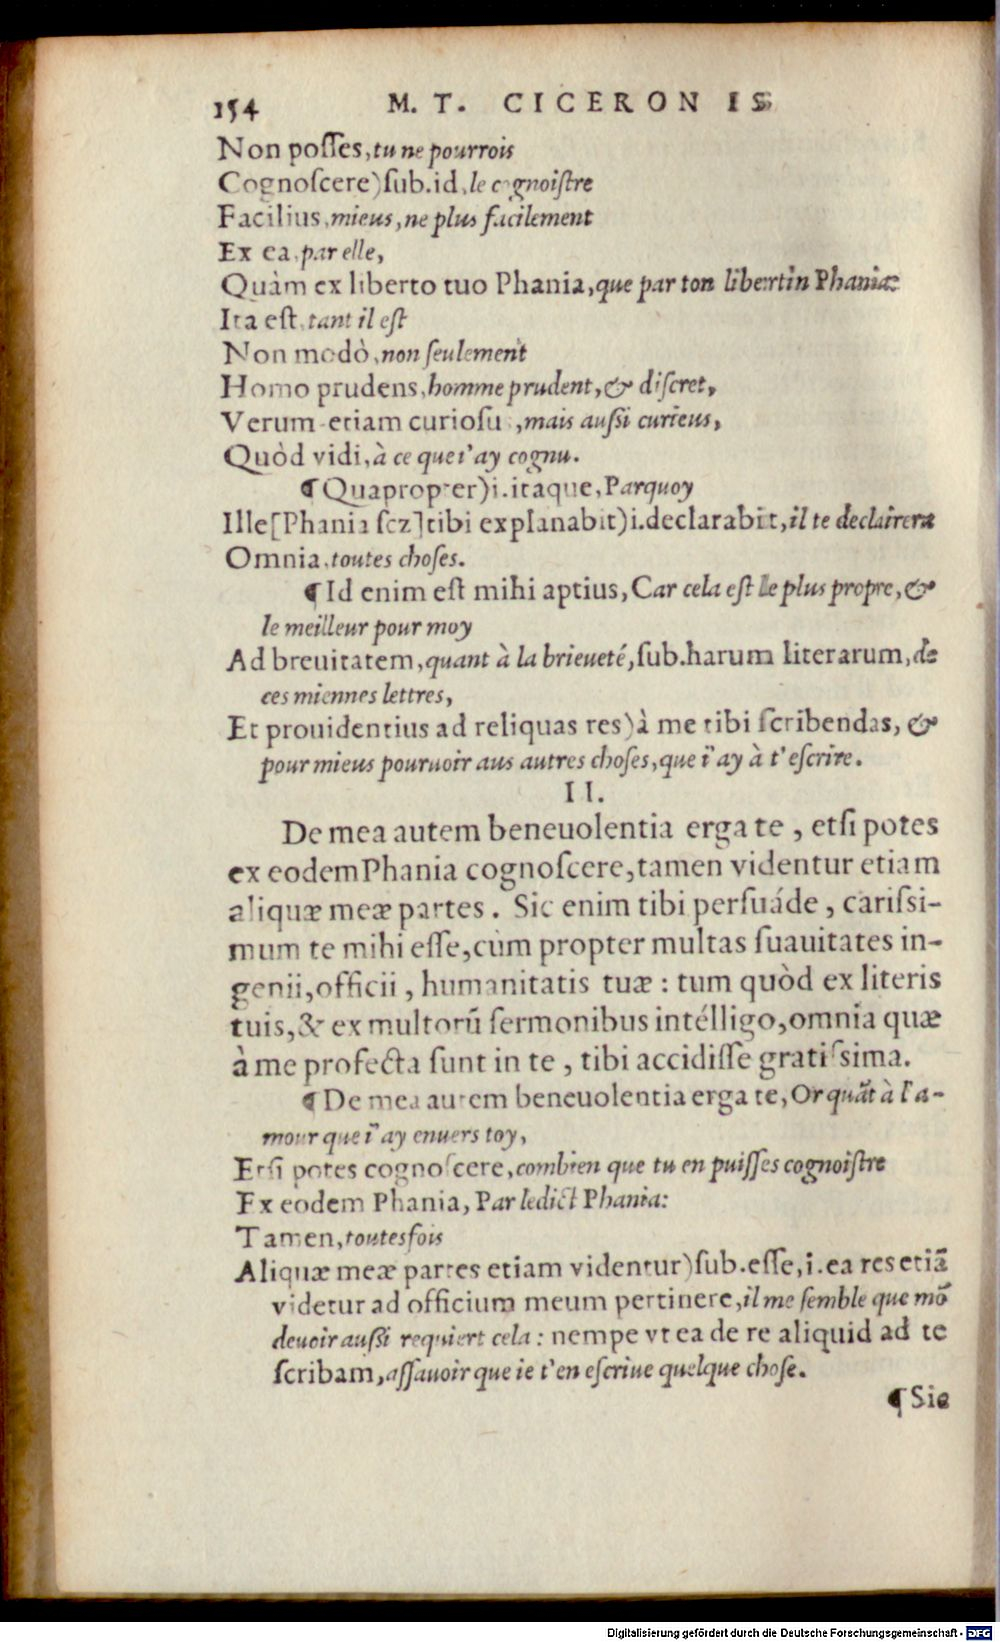 154 M. T. CICERONIS
Non posses, tu ne pourrois
Cognoscere) sub. id, le cognoistre
Facilius, mieus, ne plus facilement
Ex ea, par elle,
Quàm ex liberto tuo Phania, que par ton libertin Phaniæ
Ita est, tant il est
Non modò, non seulement
Homo prudens, homme prudent, & discret,
Verum etiam curiosus, mais aussi curieus,
Quòd vidi, à ce que i'ay cognu.
¶ Quapropter) i. itaque, Parquoy
Ille [Phania scz] tibi explanabit) i. declarabit, il te declairera
Omnia, toutes choses.
¶ Id enim est mihi aptius, Car cela est le plus propre, &
le meilleur pour moy
Ad breuitatem, quant à la brieueté, sub. harum literarum, de
ces miennes lettres,
Et prouidentius ad reliquas res) à me tibi scribendas, &
pour mieus pouruoir aus autres choses, que i'ay à t'escrire.
II.
De mea autem beneuolentia erga te, etsi potes
ex eodem Phania cognoscere, tamen videntur etiam
aliquæ meæ partes. Sic enim tibi persuáde, carissi-
mum te mihi esse, cùm propter multas suauitates in-
genii, officii, humanitatis tuæ: tum quòd ex literis
tuis, & ex multorū sermonibus intélligo, omnia quæ
à me profecta sunt in te, tibi accidisse gratissima.
¶ De mea autem beneuolentia erga te, Or quāt à l'a-
mour que i'ay enuers toy,
Etsi potes cognoscere, combien que tu en puisses cognoistre
Ex eodem Phania, Par ledict Phania:
Tamen, toutesfois
Aliquæ meæ partes etiam videntur) sub. esse, i. ea res etiā
videtur ad officium meum pertinere, il me semble que mō
deuoir aussi requiert cela: nempe vt ea de re aliquid ad te
scribam, assauoir que ie t'en escriue quelque chose.
¶ Sic
Digitalisierung gefördert durch die Deutsche Forschungsgemeinschaft - DFG